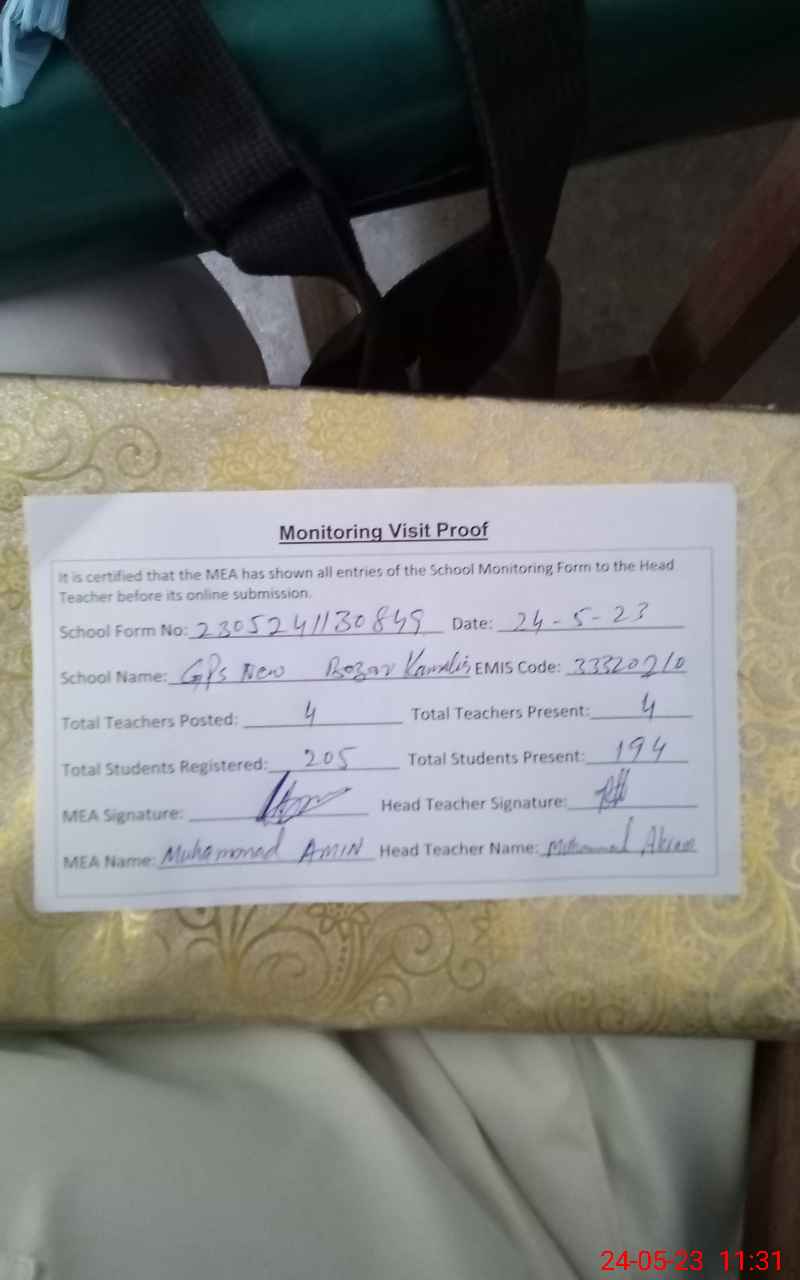 Monitoring Visit Proof
It is certified that the MEA has shown all entries of the School Monitoring Form to the Head
Teacher before its online submission.
School Form No: 2305241130849 Date: 24-5-23
School Name: GPS New Kamalia EMIS Code: 33320210
Total Teachers Posted: 4 Total Teachers Present: 4
Total Students Registered: 205 Total Students Present: 194
MEA Signature: Head Teacher Signature:
MEA Name: Muhammad AMIN Head Teacher Name: Muhammad Akram
24-05-23 11:31